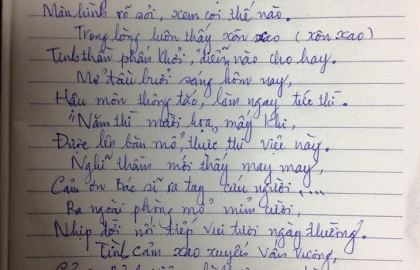 Màn hình rẽ sỏi, xem coi thế nào.
Trong lòng luôn thấy xôn xéo (xôn xao)
Tinh thần phấn khởi, điểm nào cho hay.
Mở đầu buổi sáng hôm nay,
Hậu môn thông tắc, làm ngay tức thì.
"Năm thì mười họa, mấy khi,
Được lên bàn mổ, thực thi việc này.
Nghĩ thầm mới thấy may may,
Cảm ơn bác sĩ ra tay cứu người....
Ra ngoài phòng mổ mỉm cười,
Nhịp đời nối tiếp vui tươi ngày thường.
Tình cảm xao xuyến vấn vương,